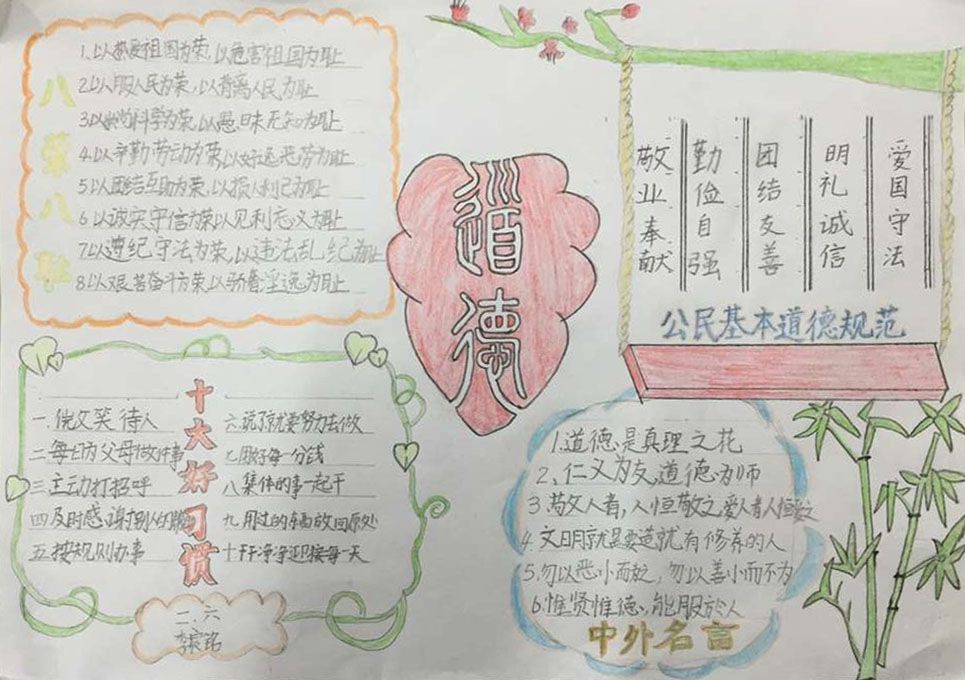 八荣八耻
1.以热爱祖国为荣,以危害祖国为耻
2以服人民为荣,以背离人民为耻
3以崇尚科学为荣,以愚昧无知为耻
4.以辛勤劳动为荣以好逸恶劳为耻
5以团结互助为荣,以损人利己为耻
6以诚实守信为荣以见利忘义为耻
7以遵纪守法为荣,以违法乱纪为耻
8以艰苦奋斗为荣以骄奢淫逸为耻
道德
敬业奉献
勤俭自强
团结友善
明礼诚信
爱国守法
公民基本道德规范
十大好习惯
一.微笑待人
二每日为父母做件事
三主动打招呼
四及时感谢别人
五按规则办事
六说了就要努力去做
七用好每一分钱
八集体的事一起干
九用过的东西放回原处
十干干净净迎接每一天
二.六
1.道德是真理之花
2、仁义为友,道德为师
3敬人者,人恒敬之爱人者人恒爱之
4.文明就是要造就有修养的人
5.勿以恶小而为之,勿以善小而不为
6.惟贤惟德,能服於人
中外名言